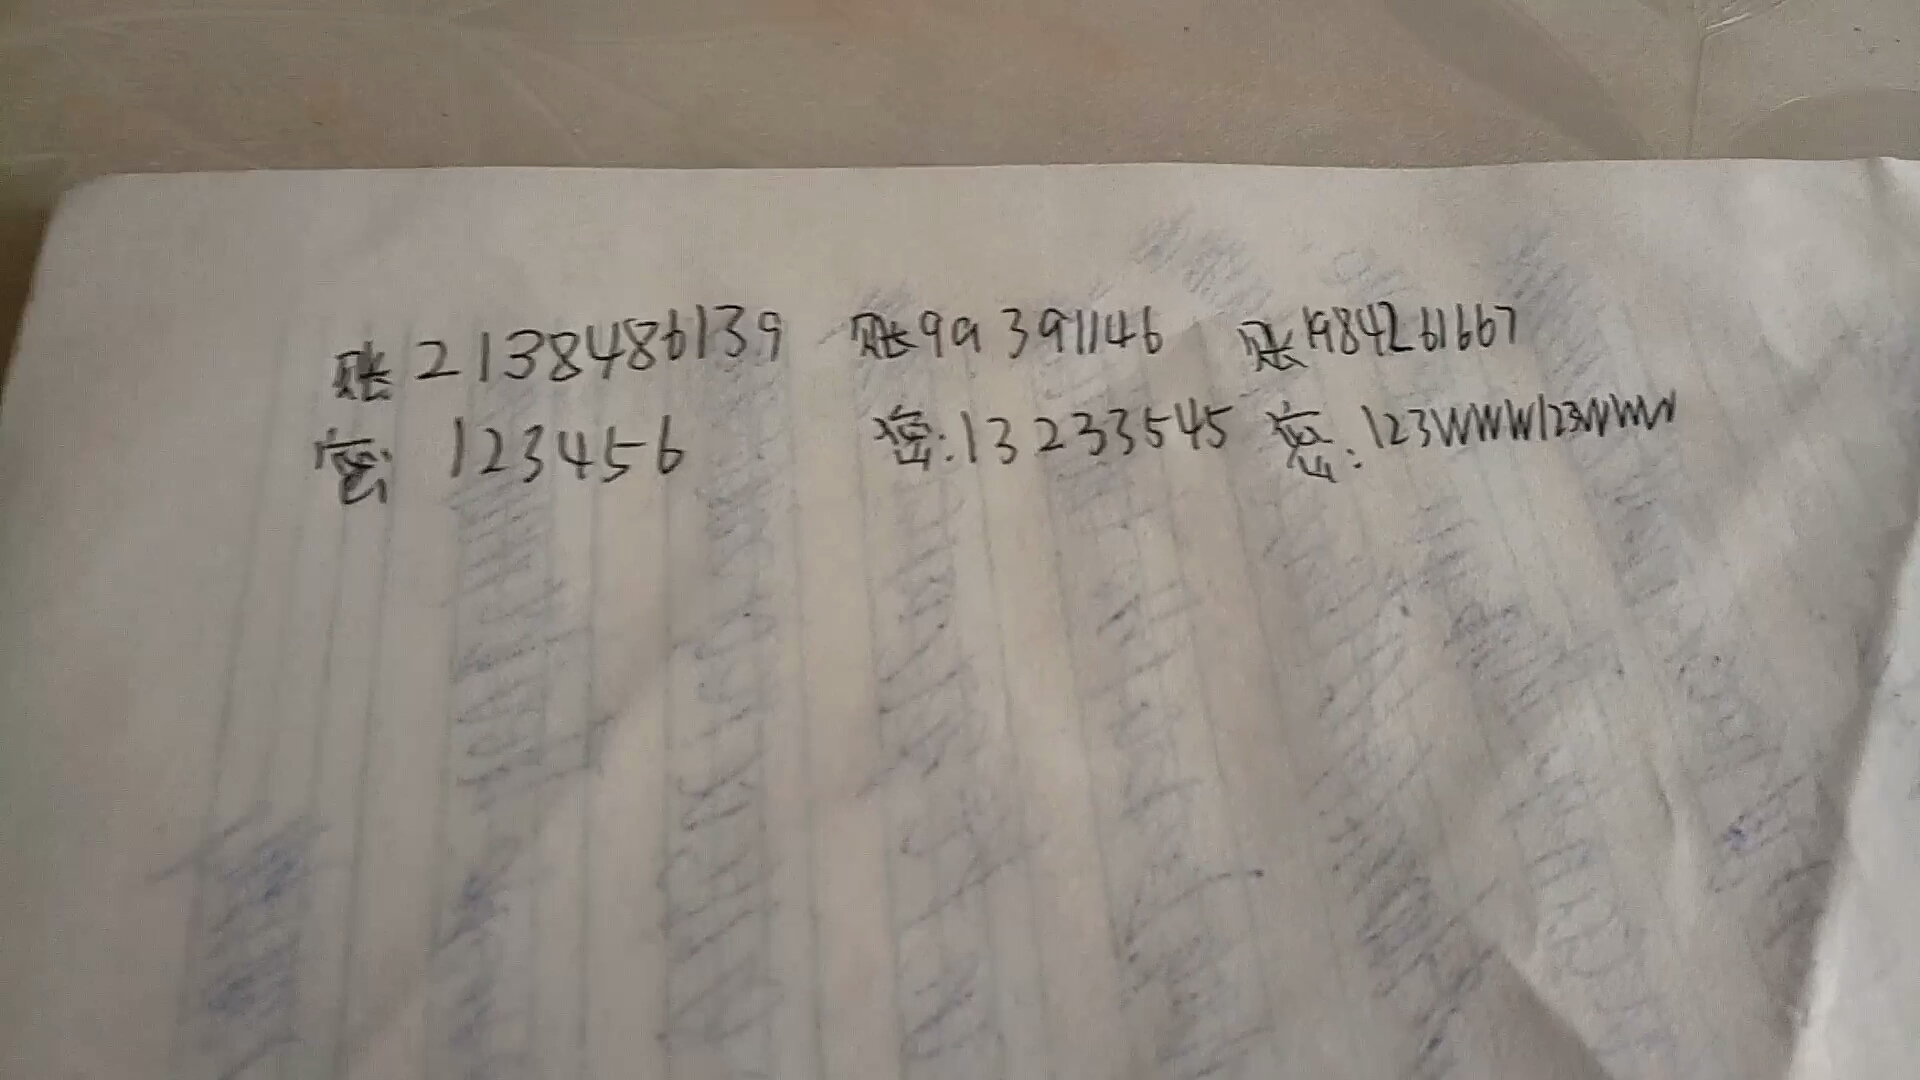 账2138486139 账99391146 账1984261667
密: 123456 密:13233545 密:123WWW123WWW